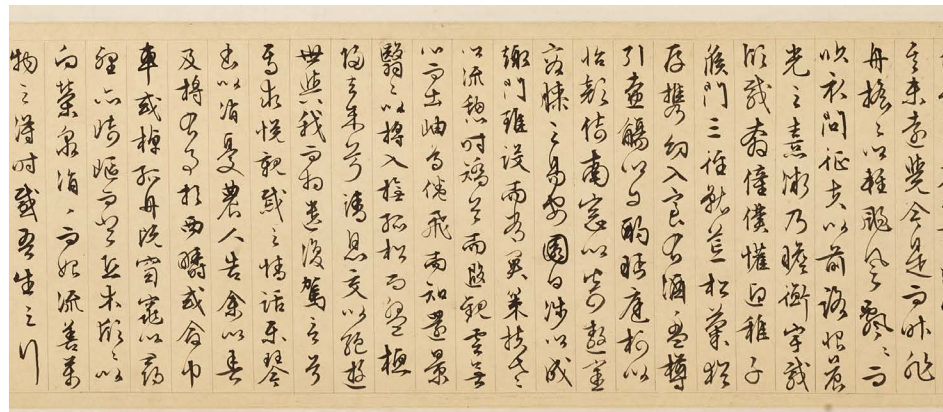 其未遠覺今是而昨非
舟搖〻以輕颺風飄〻而
吹衣問征夫以前路恨晨
光之熹微乃瞻衡宇載
欣載奔僮僕懽迎稚子
候門三徑就荒松菊猶
存攜幼入室有酒盈樽
引壺觴以自酌眄庭柯以
怡顏倚南窓以寄傲審
容膝之易安園日涉以成
趣門雖設而常關策扶老
以流憩時矯首而遐觀雲無
心而出岫鳥倦飛而知還景
翳〻以將入撫孤松而盤桓
歸去來兮請息交以絕遊
世與我而相遺復駕言兮
焉求悅親戚之情話樂琴
書以消憂農人告余以春
及將有事於西疇或命巾
車或棹孤舟既窈窕以尋
壑亦崎嶇而經丘木欣〻以
向榮泉涓〻而始流善萬
物之得時感吾生之行